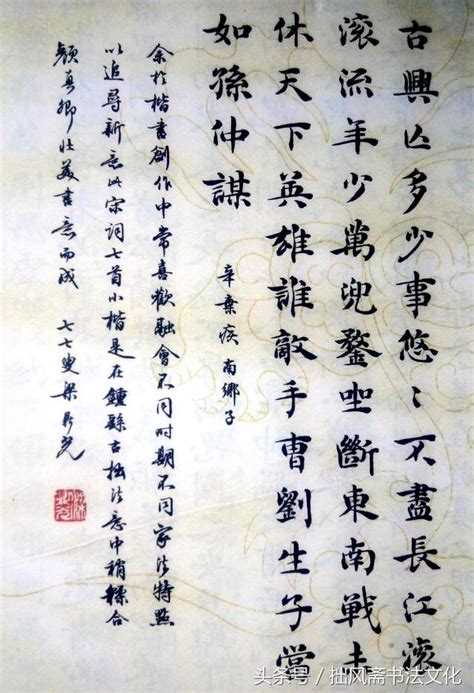 古興亡多少事悠〻不盡長江滾
滾流年少萬兜鍪坐斷東南戰未
休天下英雄誰敵手曹劉生子當
如孫仲謀
辛棄疾 南鄉子
余於楷書創作中常喜歡融會不同時期不同家法特點
以追尋新意此宋詞七首小楷是在鍾繇古拙法意中稍糅合
顏真卿壯美書意而成 七七叟梁鼎光
头条号/拙风斋书法文化